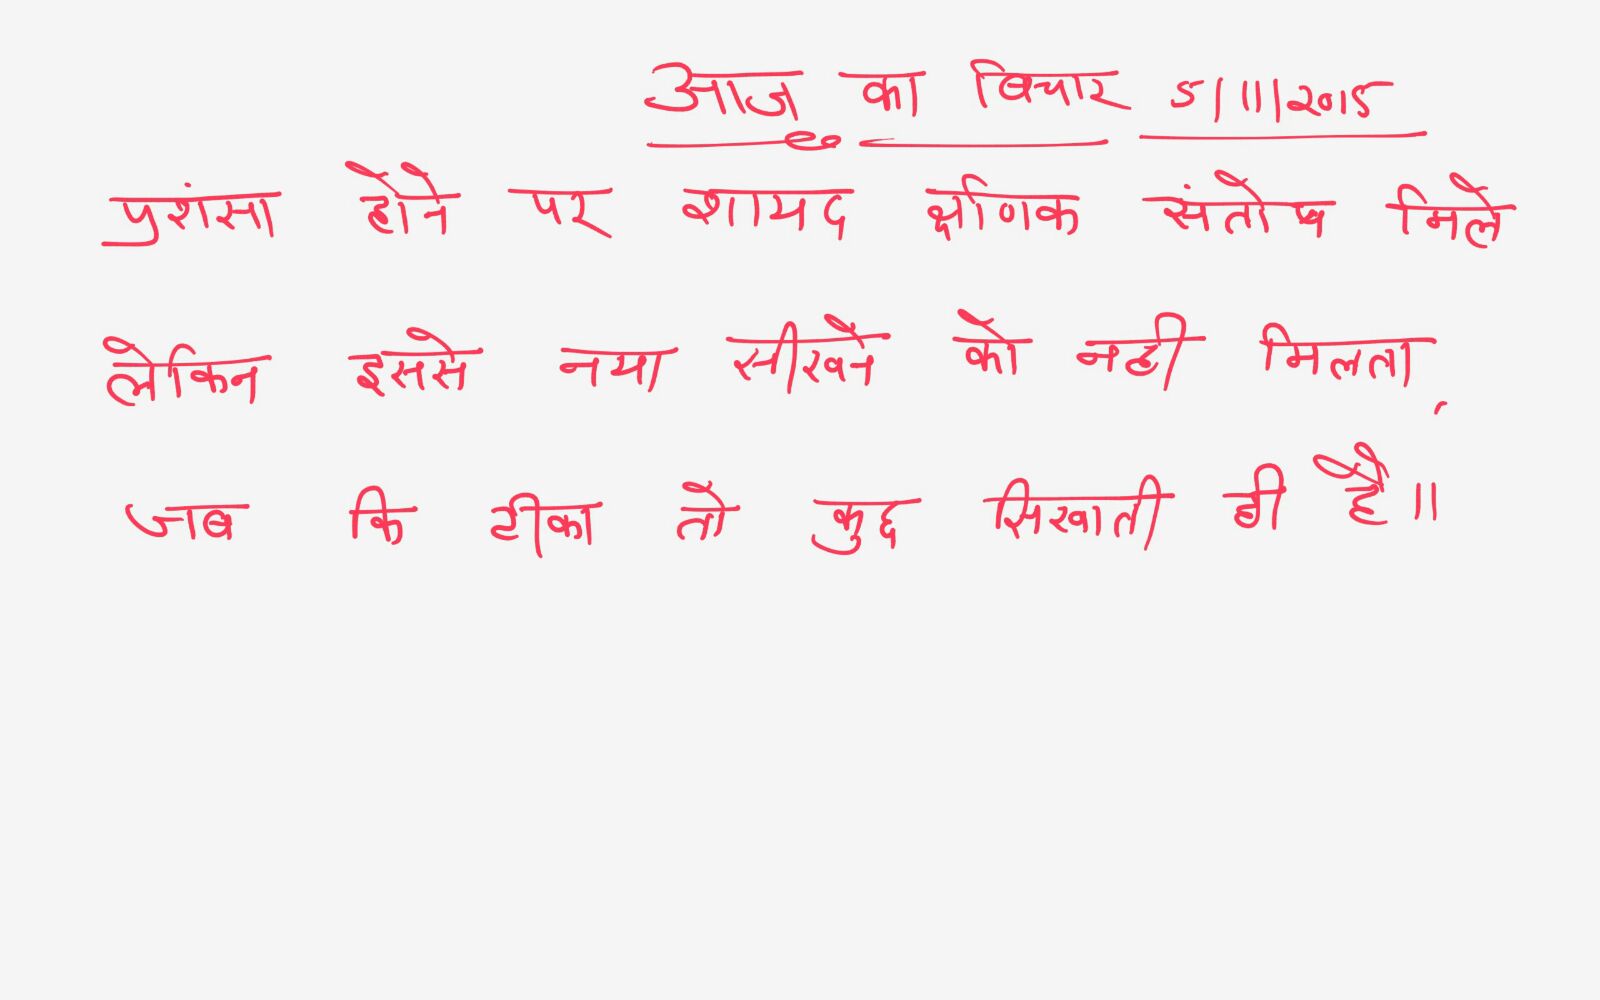 आज का विचार 5/11/2015
प्रशंसा होने पर शायद क्षणिक संतोष मिले
लेकिन इससे नया सीखने को नही मिलता,
जब कि टीका तो कुछ सिखाती ही है॥